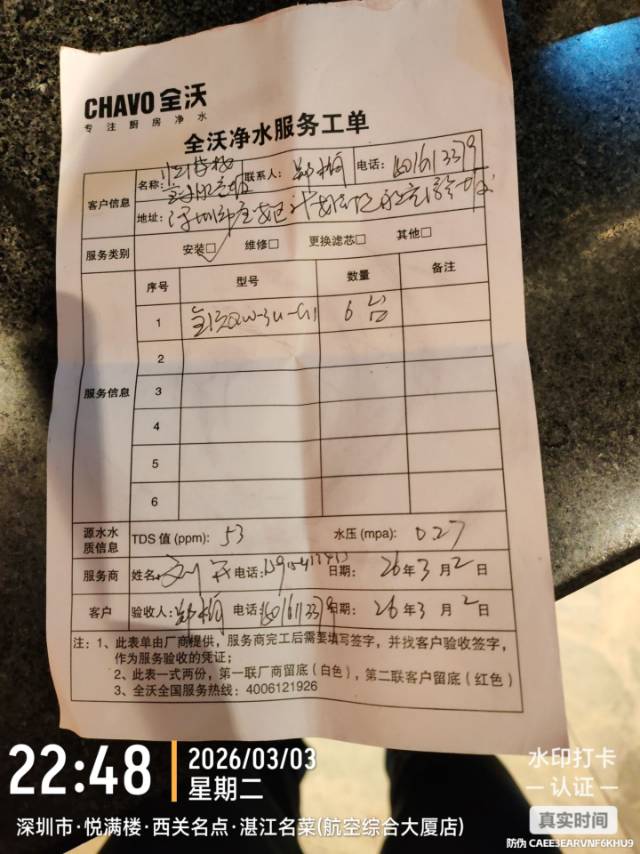 CHAVO 全沃
专注厨房净水
全沃净水服务工单
客户信息
名称:
联系人: 郑楠
电话:
地址: 深圳市宝安区
服务类别
安装□ 维修□ 更换滤芯□ 其他□
服务信息
序号 型号 数量 备注
1 6台
2
3
4
5
6
源水水质信息
TDS 值 (ppm): 53 水压 (mpa): 0.27
服务商 姓名: 电话: 日期: 26年3月2日
客户 验收人: 郑楠 电话: 日期: 26年3月2日
注: 1、此表单由厂商提供，服务商完工后需要填写签字，并找客户验收签字，
作为服务验收的凭证；
2、此表一式两份，第一联厂商留底（白色），第二联客户留底（红色）
3、全沃全国服务热线：4006121926
22:48
2026/03/03
星期二
深圳市·悦满楼·西关名点·湛江名菜(航空综合大厦店)
水印打卡
认证
真实时间
防伪 CAEE3EARVNF6KHU9